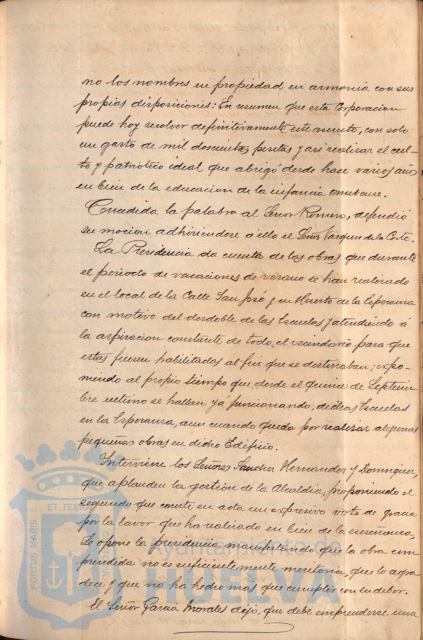 no los nombres en propiedad en armonía con sus
propias disposiciones: En resumen que esta Corporacion
puede hoy resolver definitivamente este asunto, con solo
un gasto de mil doscientas pesetas y asi realizar el cul-
to y patriotico ideal que abrigó desde hace varios años
en bien de la educacion de la infancia onubense.
Concedida la palabra al Señor Romero, defendió
su mocion adhiriendose á ello el Señor Vazquez de la Corte.
La Presidencia da cuenta de las obras que durante
el periodo de vacaciones de verano se han realizado
en el local de la Calle San José y en Huerto de la Esperanza
con motivo del desdoble de las Escuelas y atendiendo á
la aspiracion constante de todo el vecindario para que
estas fuesen habilitadas al fin que se destinaban; expo-
niendo al propio tiempo que desde el quince de Septiem-
bre ultimo se hallan ya funcionando, dichas Escuelas
en la Esperanza, aun cuando queda por realizar algunas
pequeñas obras en dicho Edificio.
Interviene los Señores Sanchez Hernandez y Dominguez,
que aplauden la gestión de la Alcaldia, proponiendo el
segundo que conste en acta un expresivo voto de gracia
por la labor que ha realizado en bien de la enseñanza.
Se opone la presidencia manifestando que la obra em-
prendida no es suficientemente meritoria, que lo agra-
dece y que no ha hecho más que cumplir con su deber.
El Señor Garcia Morales dijo, que debe emprenderse una
Ayuntamiento de
HUELVA
PORTUS MARIS
ET TERRAE